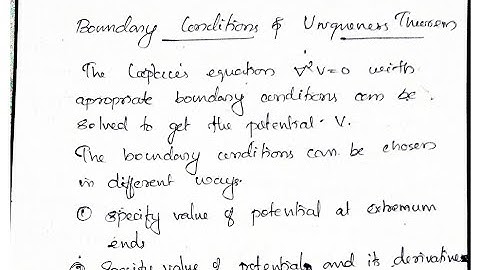 Boundary Conditions & Uniqueness Theorem
The Laplace's equation ∇²V=0 with
apropriate boundary conditions can be
solved to get the potential V.
The boundary conditions can be chosen
in different ways.
① specify value of potential at extremum
ends
② Specify value of potential and its derivative